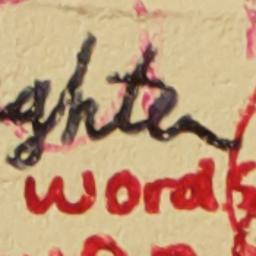 ghter
words